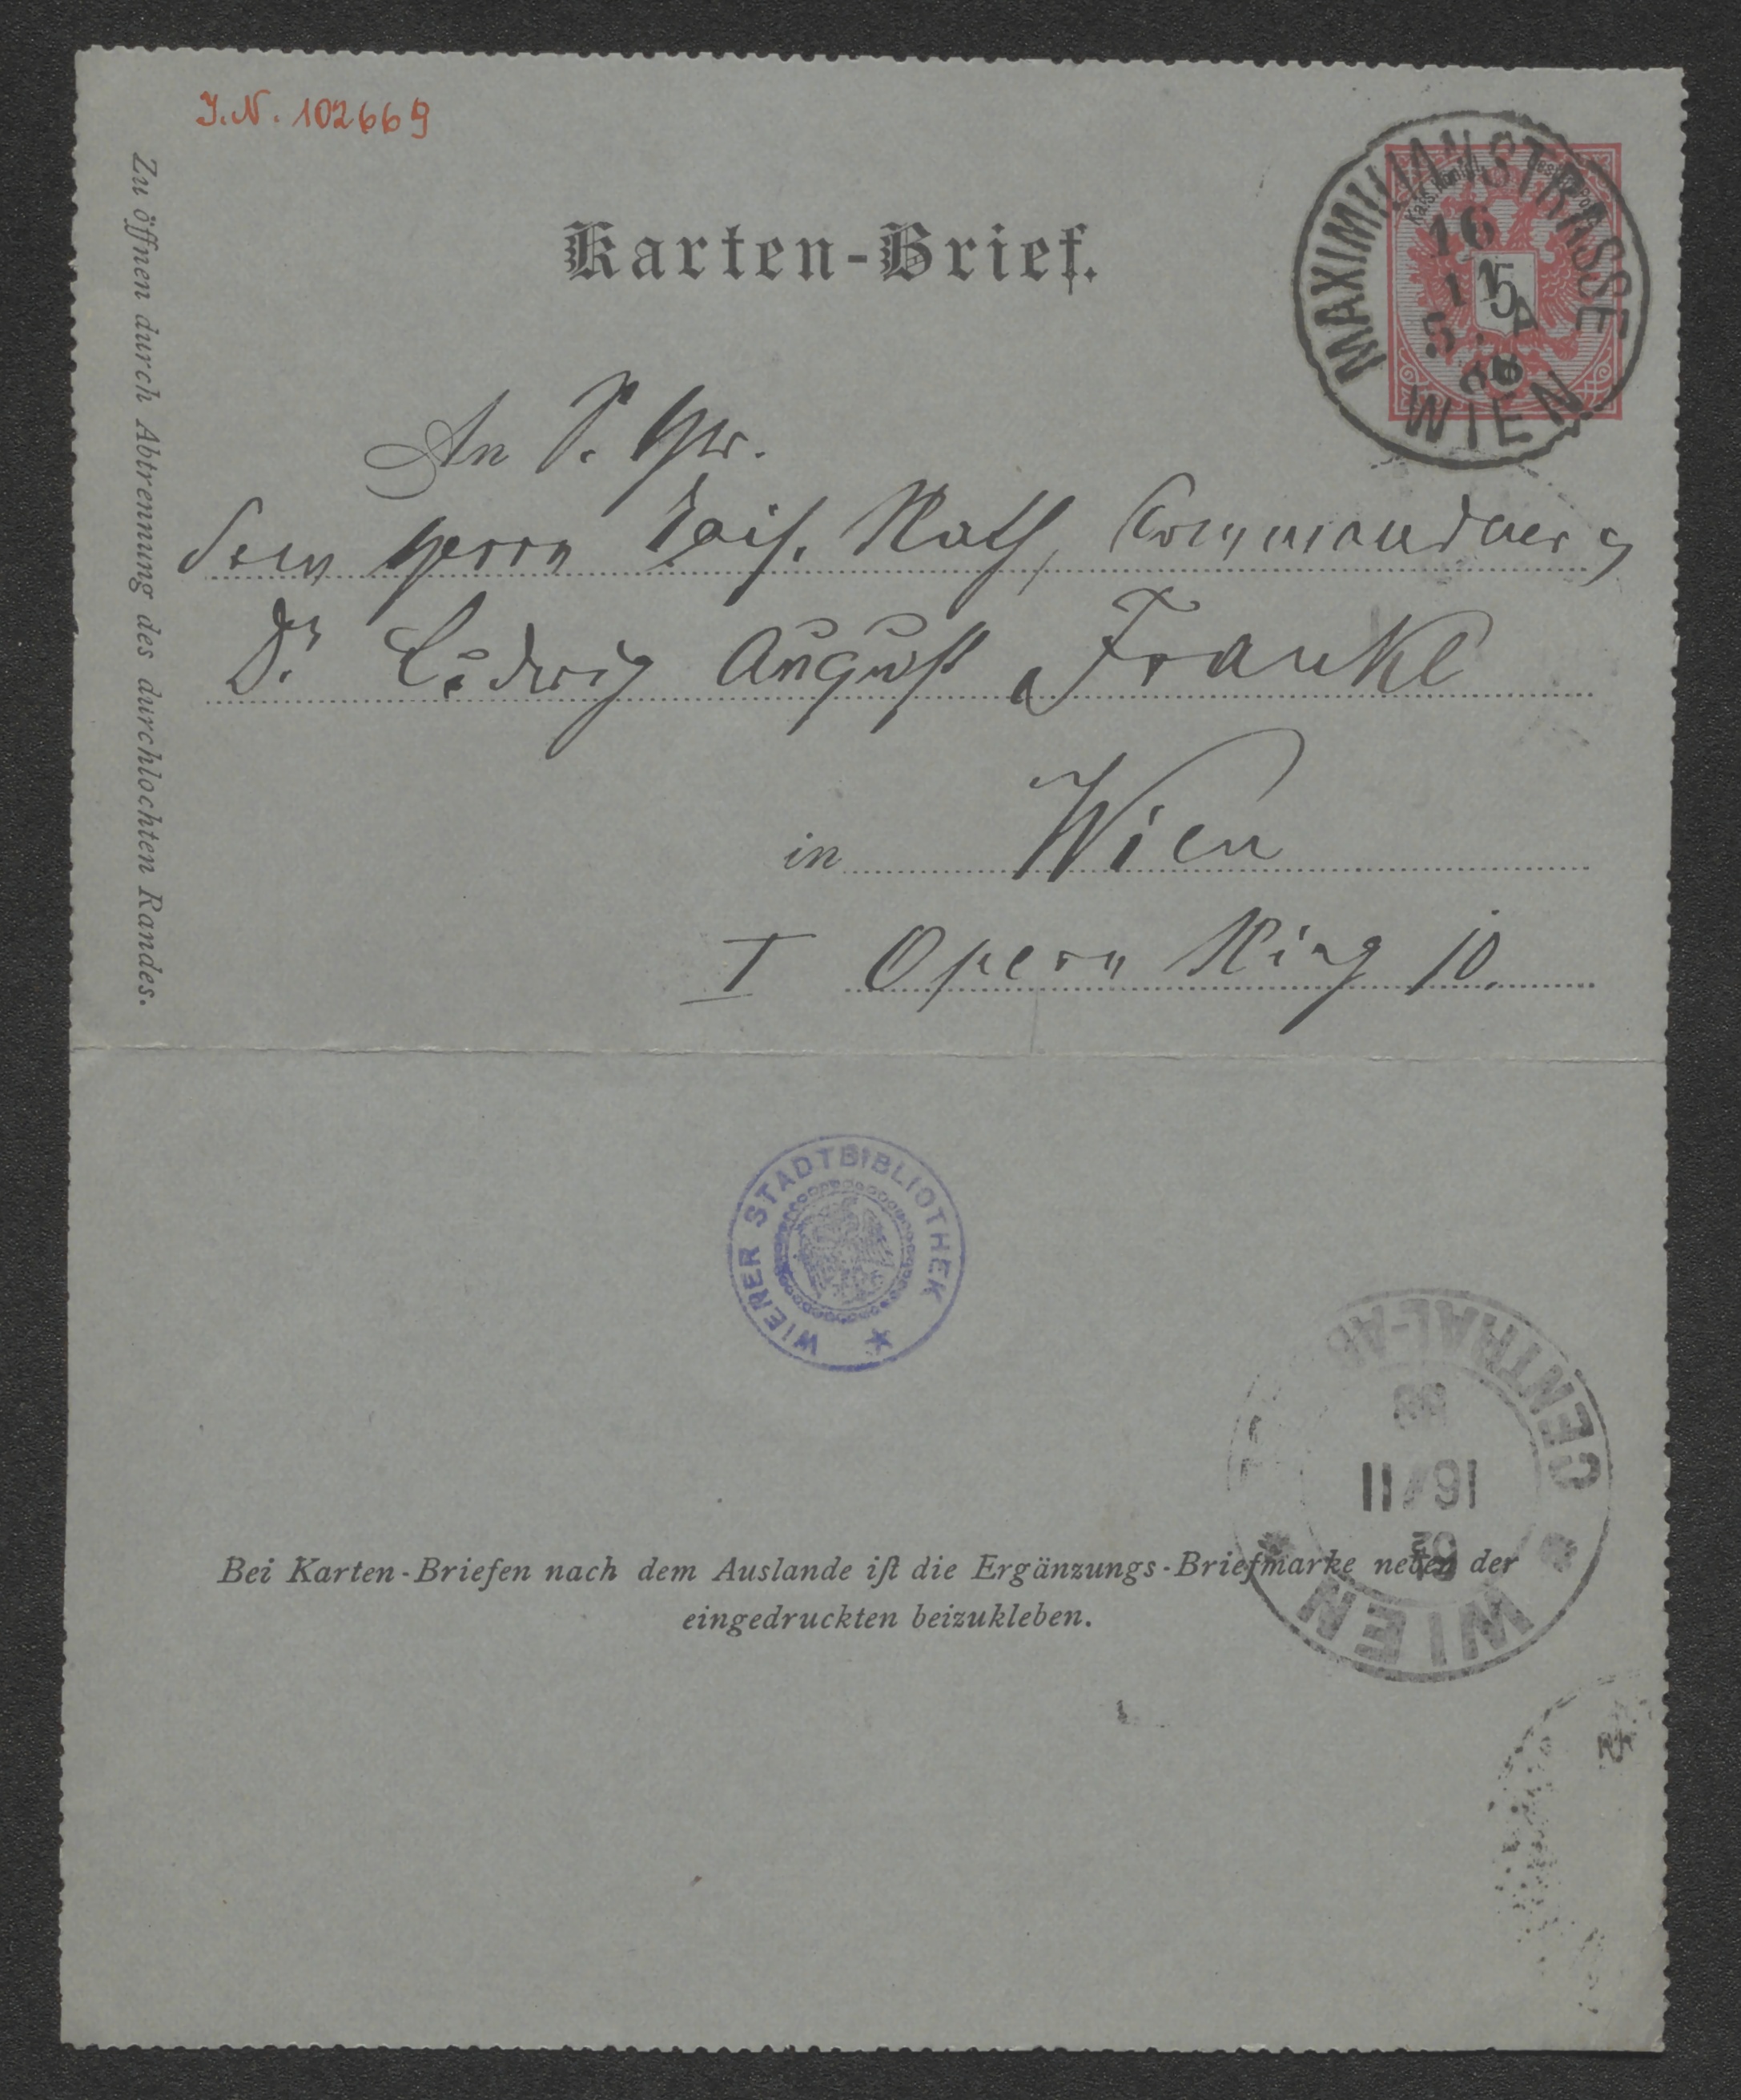 J.N. 102669
Zu öffnen durch Abtrennung des durchlochten Randes.
Karten-Brief.
MAXIMILIANSTRASSE
16
11
5 A
88
WIEN
5
An S. Hw.
dem Herrn Kais. Rath, Commandeur
Dr Ludwig August Frankl
in Wien
I Opern Ring 10.
WIENER STADTBIBLIOTHEK
CENTRAL-AB
88
16/11
WIEN
Bei Karten-Briefen nach dem Auslande iſt die Ergänzungs-Briefmarke neben der
eingedruckten beizukleben.